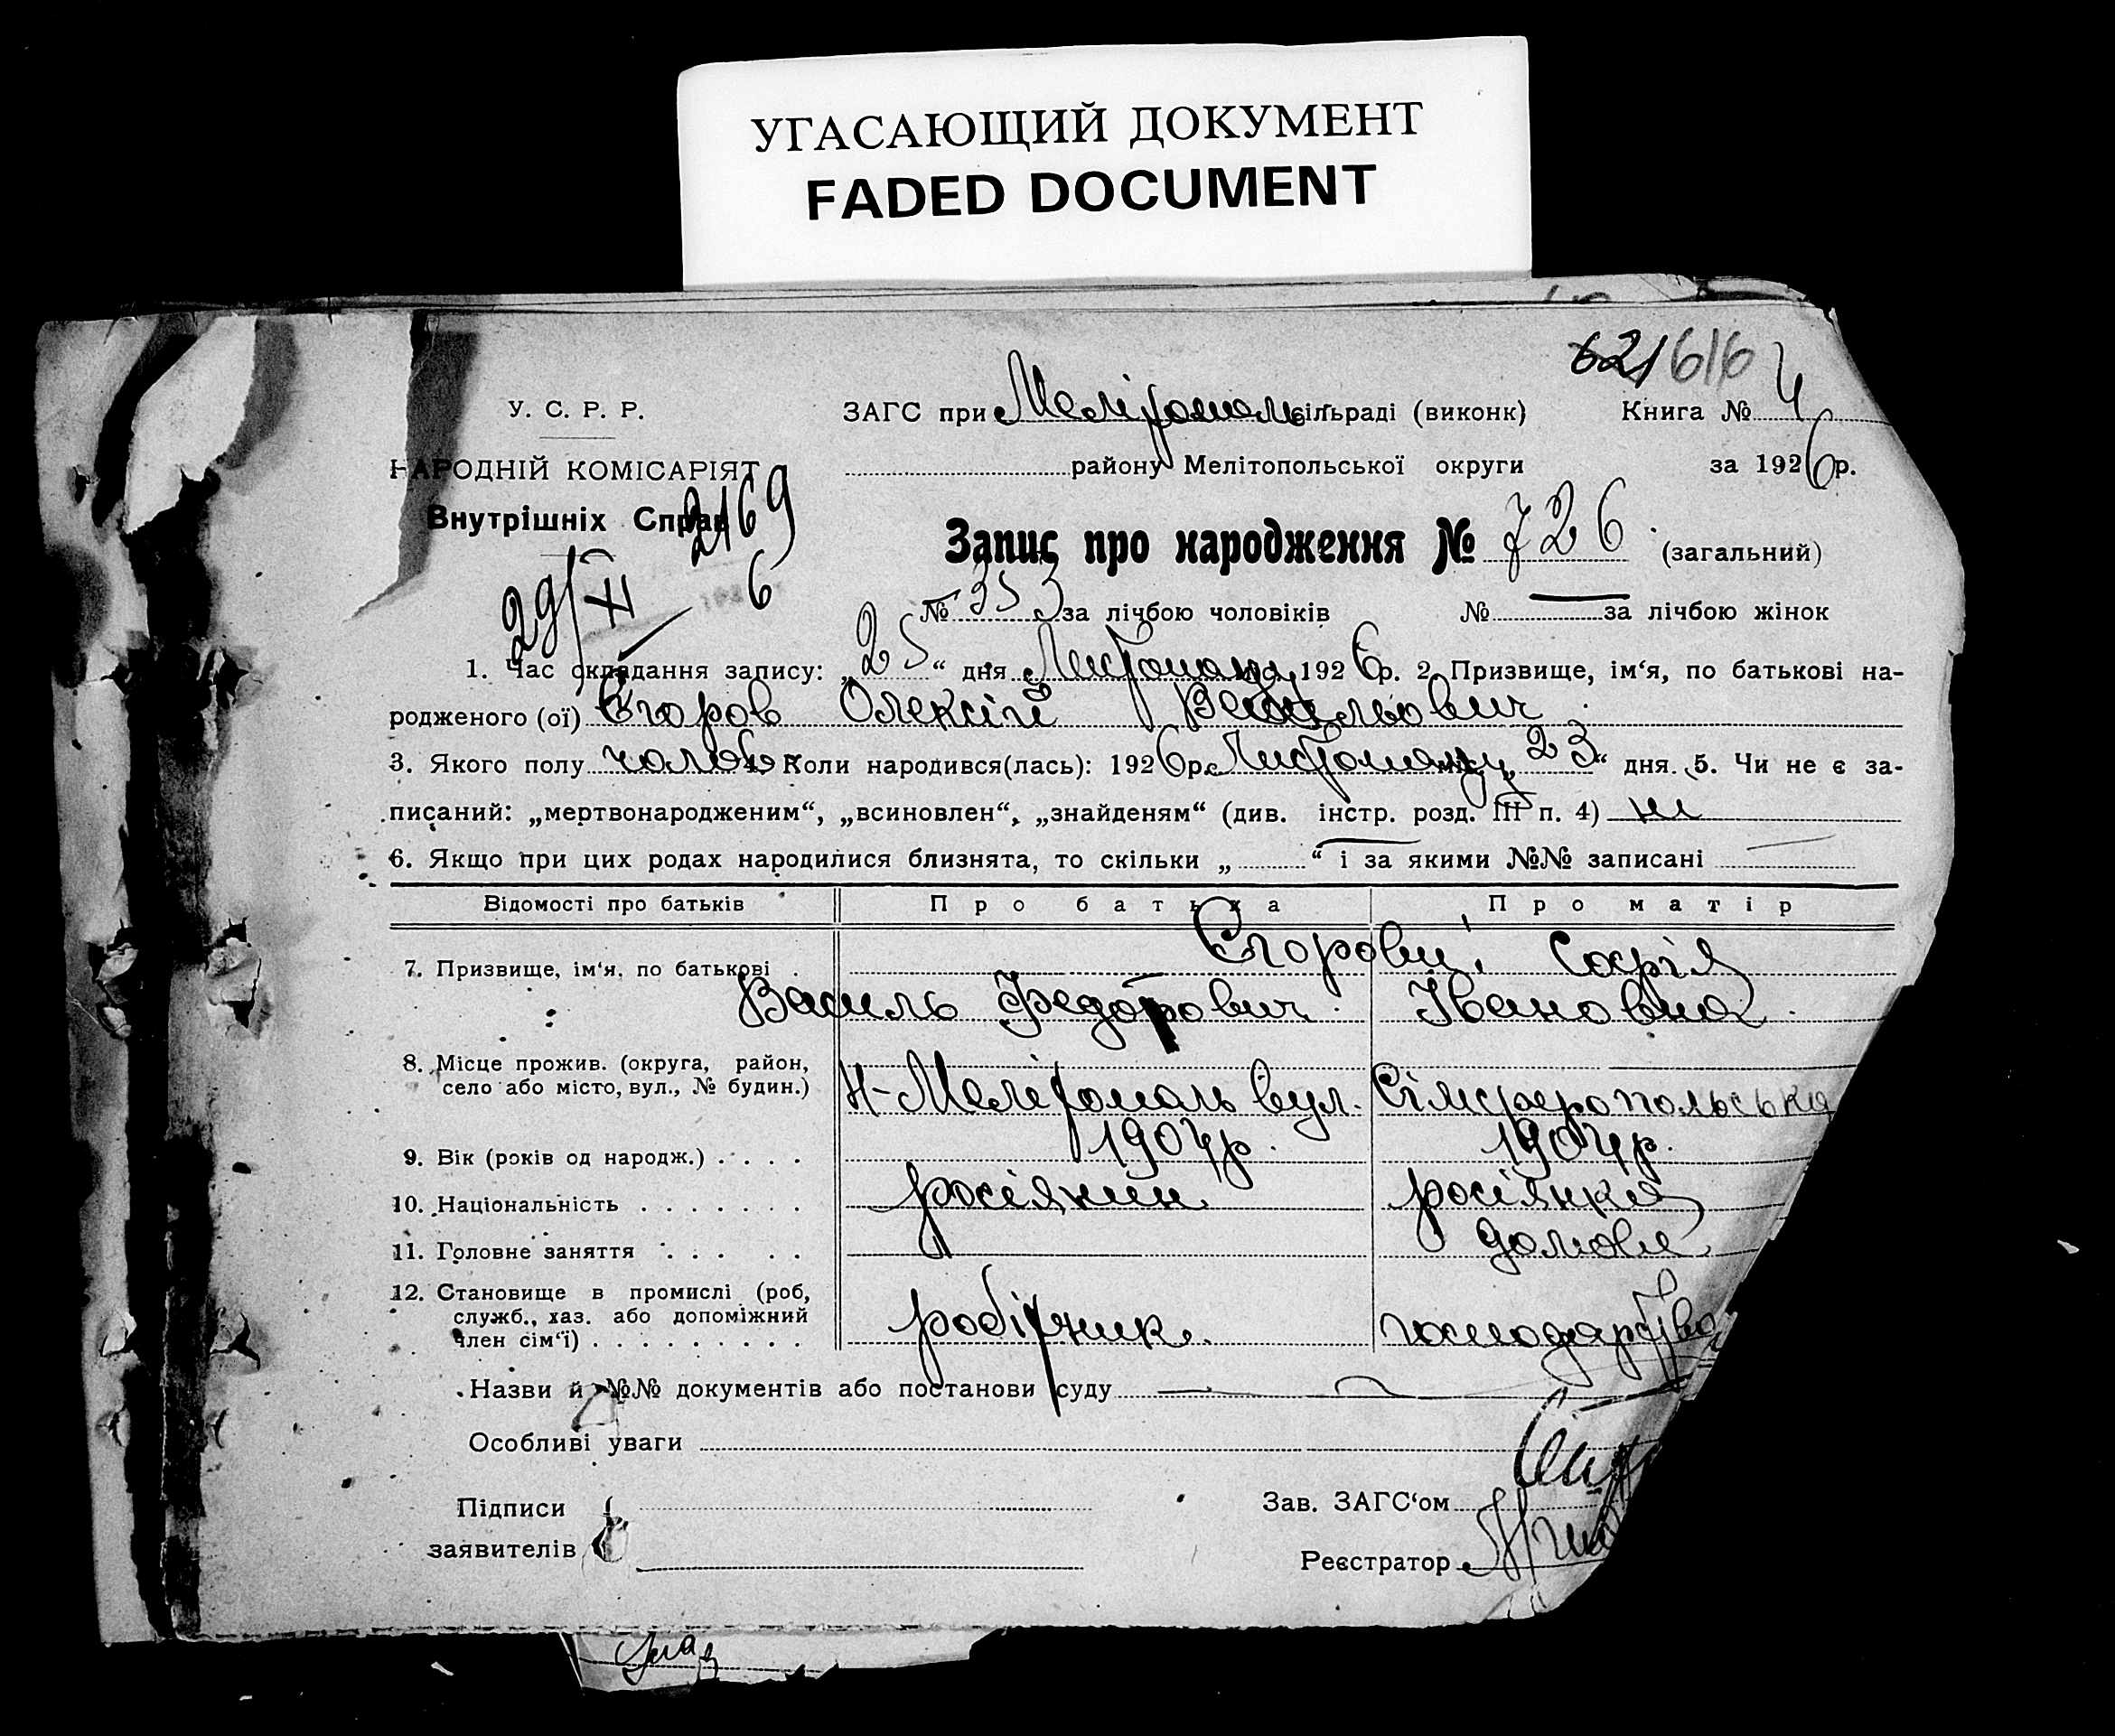 УГАСАЮЩИЙ ДОКУМЕНТ
FADED DOCUMENT
621 616
У. С. Р. Р.
ЗАГС при Мелітополь сільраді (виконк) Книга № 4
НАРОДНІЙ КОМІСАРІЯТ
району Мелітопольської округи за 1926 р.
Внутрішніх Справ
2169
Запис про народження № 726 (загальний)
29/XI 6
№ 353 за лічбою чоловіків № — за лічбою жінок
1. Час складання запису: „25“ дня Листопаду 1926 р. 2. Призвище, ім‘я, по батькові на-
родженого (ої) Єгоров Олексій Васильович
3. Якого полу чолов. 4. Коли народився(лась): 1926 р. Листопаду „23“ дня. 5. Чи не є за-
писаний: „мертвонародженим“, „всиновлен“, „знайденям“ (див. інстр. розд. III п. 4) ні
6. Якщо при цих родах народилися близнята, то скільки „ — “ і за якими №№ записані —
Відомості про батьків Про батька Про матір
Єгорови, Софія
7. Призвище, ім‘я, по батькові
Василь Федорович Івановна
8. Місце прожив. (округа, район,
село або місто, вул., № будин.) Н-Мелітополь вул. Сімферопольська
9. Вік (років од народж.) 1904 р. 1904 р.
10. Національність росіянин росіянка
11. Головне заняття домове
12. Становище в промислі (роб,
служб., хаз. або допоміжний
член сім‘ї) робітник господарство
Назви й №№ документів або постанови суду —
Особливі уваги
Підписи
заявителів
Зав. ЗАГС‘ом
Реєстратор